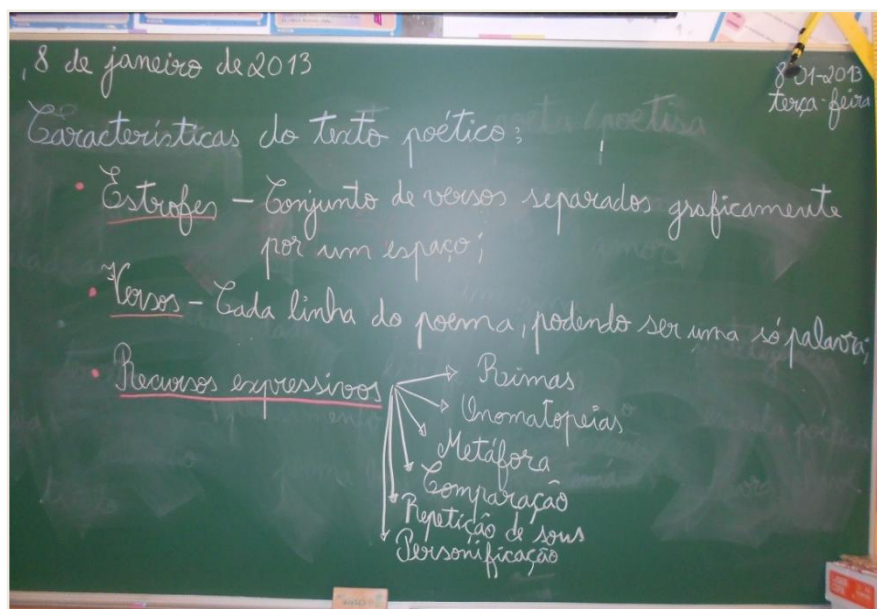 , 8 de janeiro de 2013
8-01-2013
terça-feira
Características do texto poético:
poeta / poetisa
• Estrofes – Conjunto de versos separados graficamente
por um espaço;
• Versos – Cada linha do poema, podendo ser uma só palavra;
• Recursos expressivos
Rimas
Onomatopeias
Metáfora
Comparação
Repetição de sons
Personificação